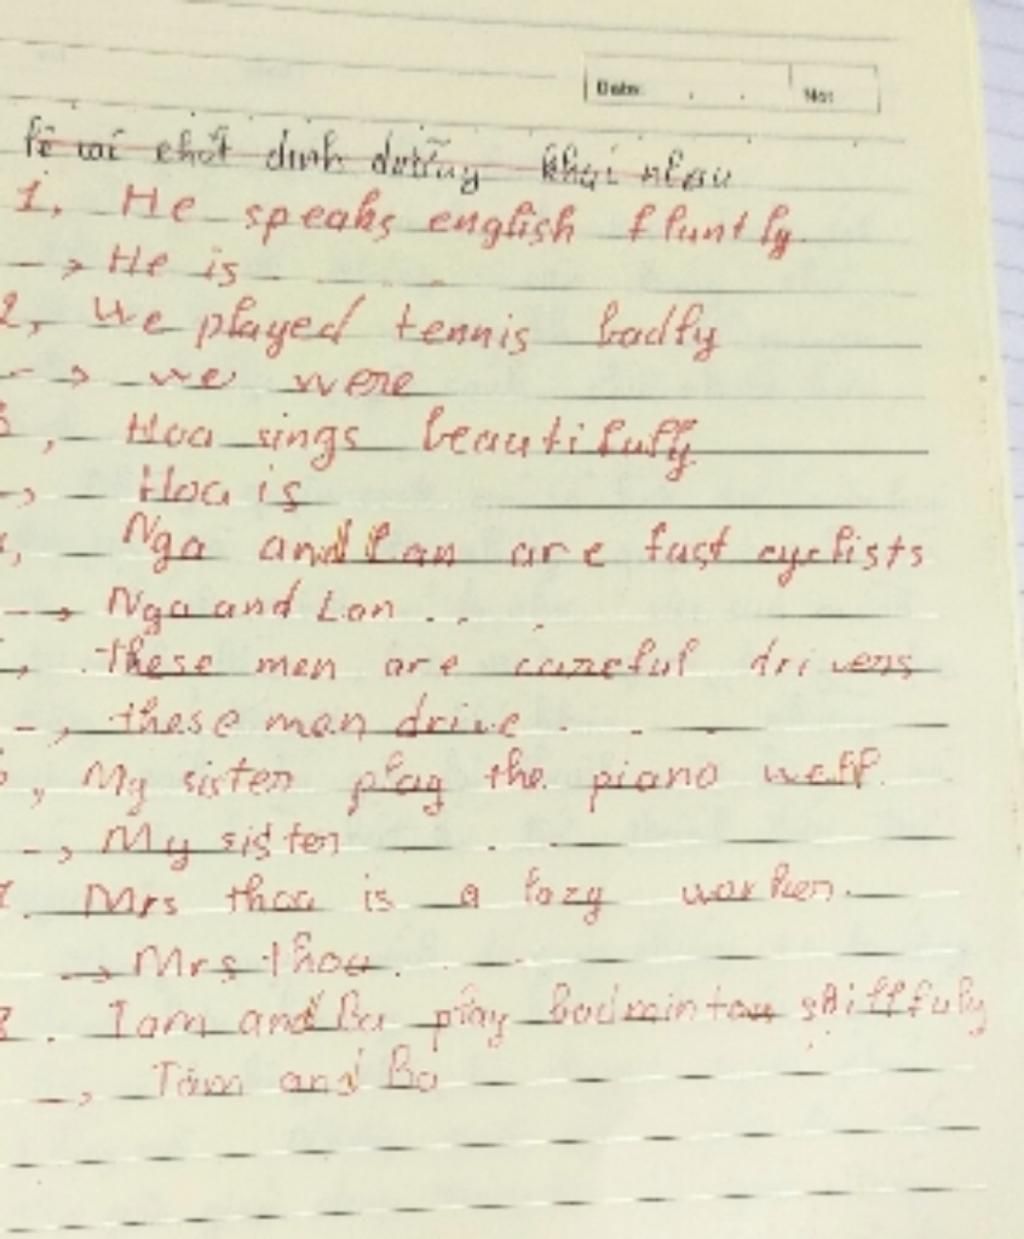 Date: Not
chất dinh dưỡng khai nhau
1, He speaks english fluntly
-> He is ...
2, We played tennis badly
-> we were
, Hoa sings beautifully
-> Hoa is
, Nga and Lan are fast cyclists
-> Nga and Lan ...
, these men are careful drivers
-> these men drive ...
, My sister play the piano well.
-> My sister ...
. Mrs thoa is a lazy worker.
-> Mrs thoa ...
8. Tam and Ba play badminton skillfuly
-> Tam and Ba